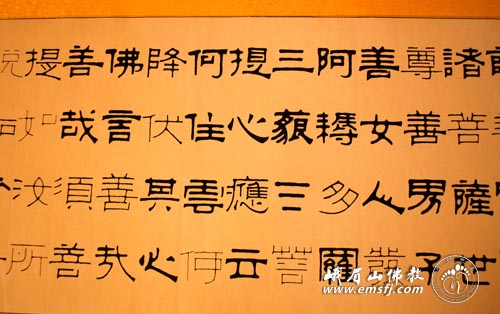 諸菩薩世
尊善男子
善女人發
阿耨多羅
三藐三菩
提心應云
何住雲何
降伏其心
佛言善哉
善哉須善
提如汝所
峨眉山佛教
www.emsfj.com